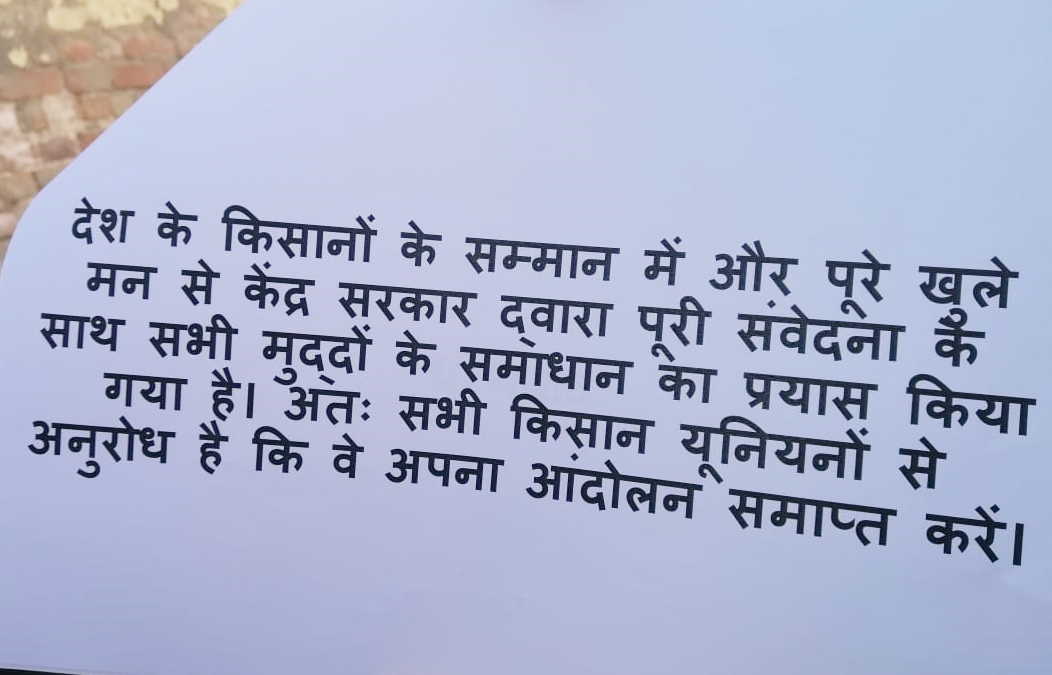 देश के किसानों के सम्मान में और पूरे खुले
मन से केंद्र सरकार द्वारा पूरी संवेदना के
साथ सभी मुद्दों के समाधान का प्रयास किया
गया है। अतः सभी किसान यूनियनों से
अनुरोध है कि वे अपना आंदोलन समाप्त करें।